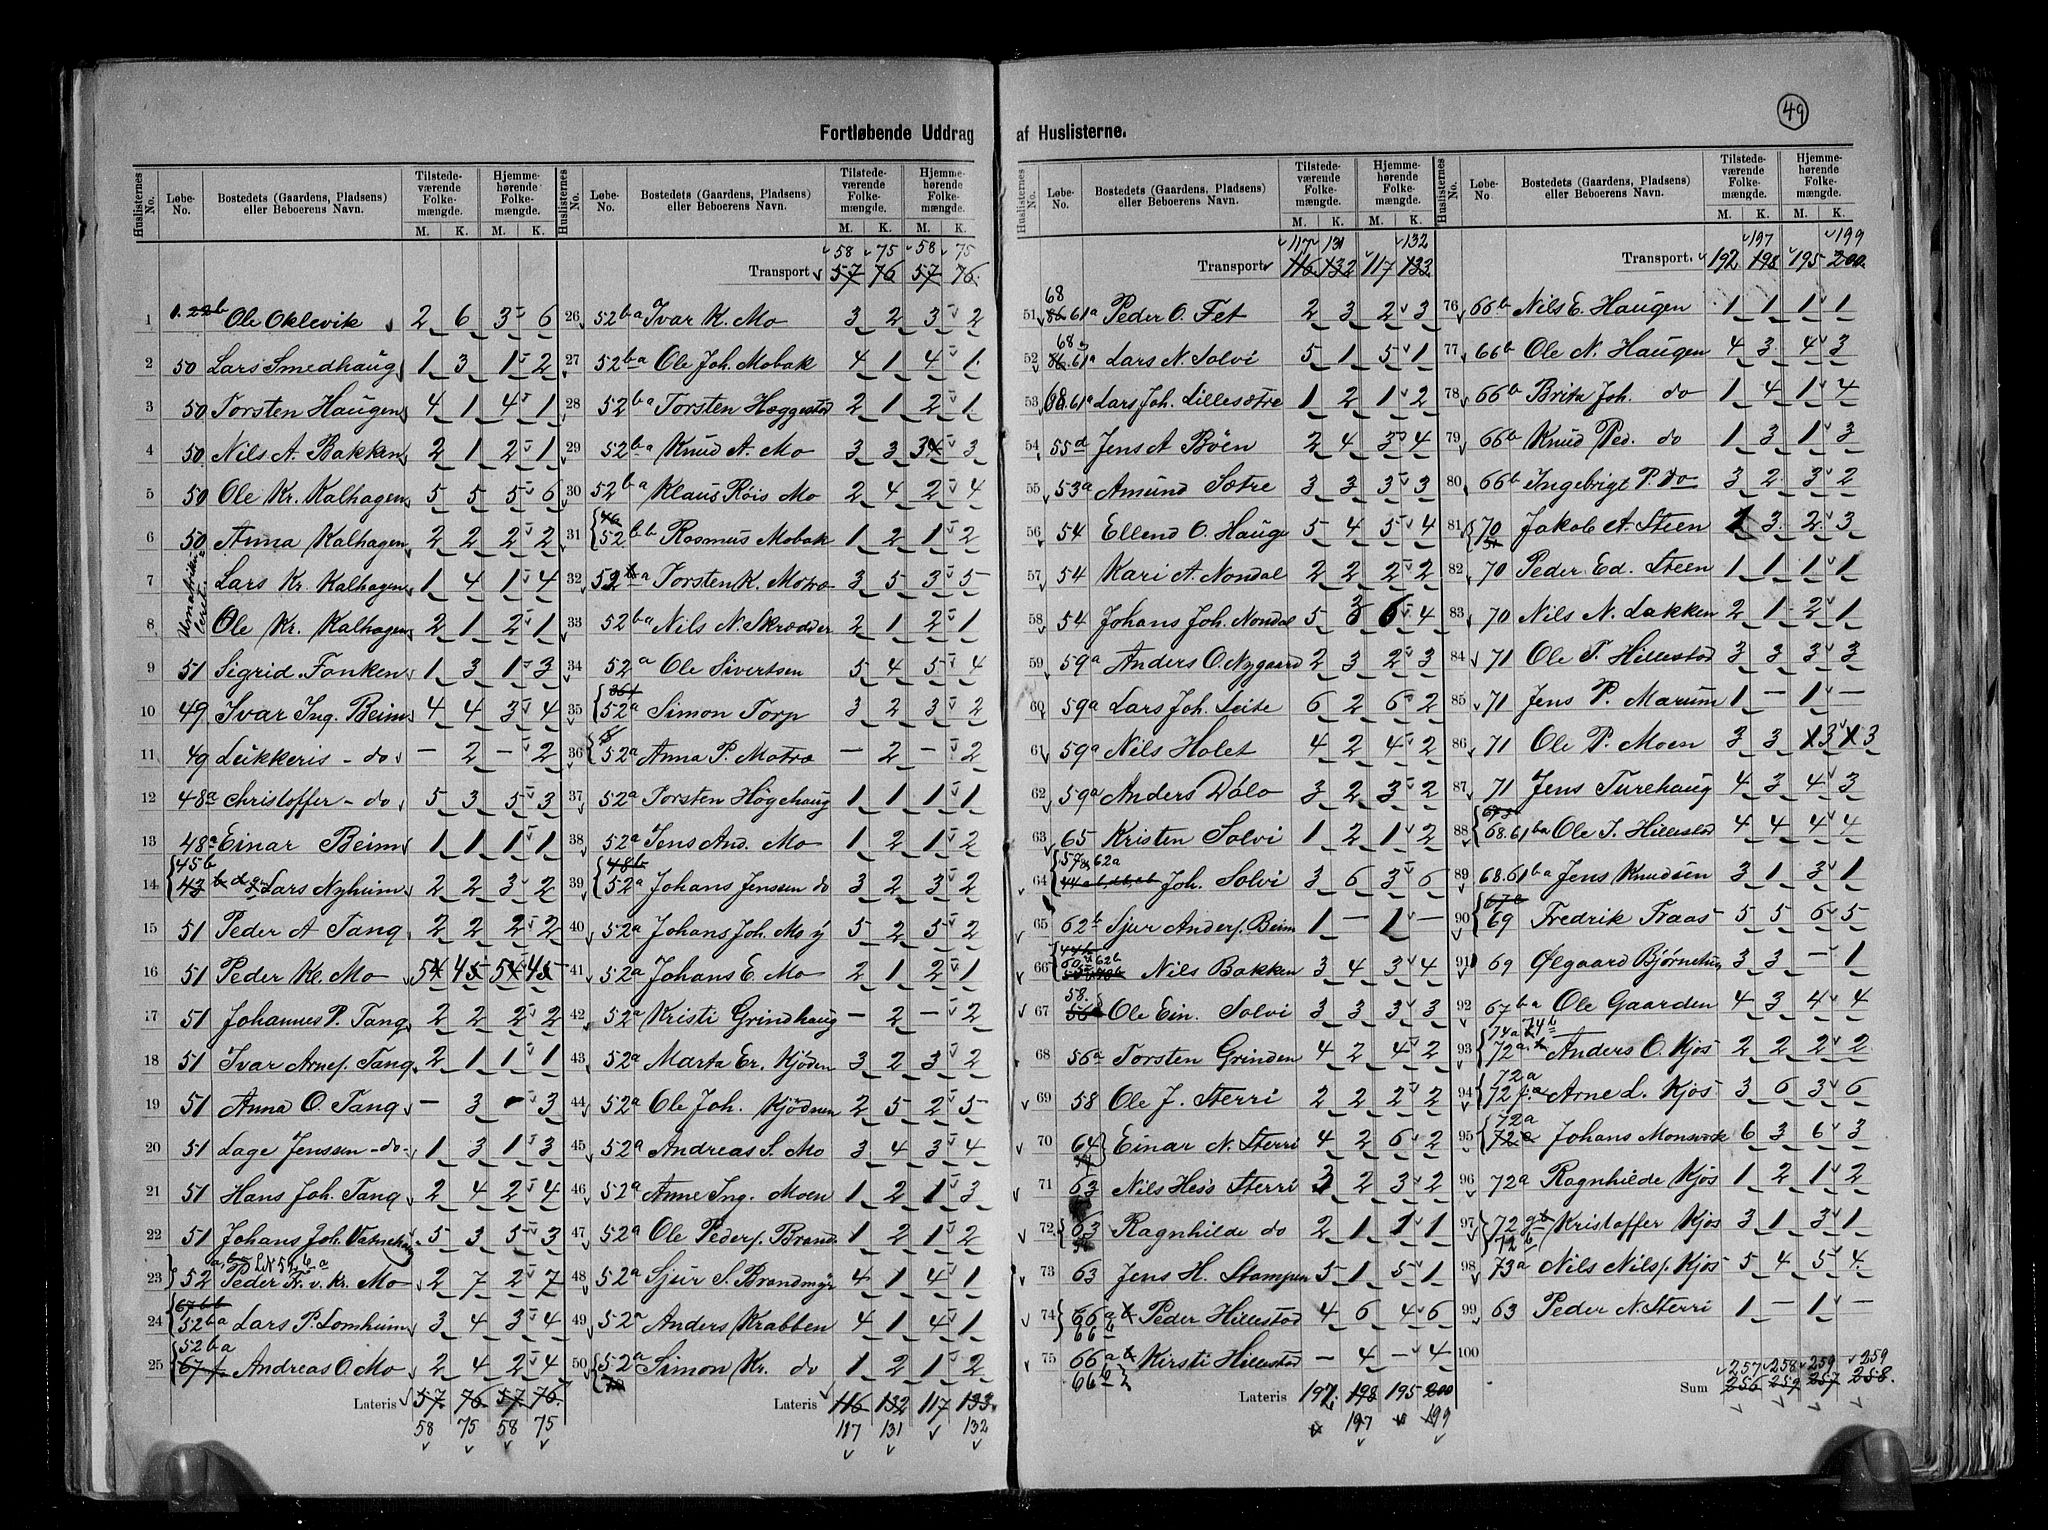 49
Fortløbende Uddrag af Huslisterne.
Huslisternes No. Løbe-No. Bostedets (Gaardens, Pladsens) eller Beboerens Navn. Tilstedeværende Folkemængde. M. K. Hjemmehørende Folkemængde. M. K.
1 1. 22b Ole Oklevik 2 6 3 6
2 50 Lars Smedhaug 1 3 1 2
3 50 Torsten Haugen 4 1 4 1
4 50 Nils A. Bakken 2 1 2 1
5 50 Ole Kr. Kalhagen 5 5 5 6
6 50 Anna Kalhagen 2 2 2 2
7 Lars Kr. Kalhagen 1 4 1 4
8 Ole Kr. Kalhagen 2 1 2 1
9 51 Sigrid Fonken 1 3 1 3
10 49 Ivar Ing. Beim 4 4 3 4
11 49 Lukkeris - do - 2 - 2
12 48a Christoffer - do 5 3 5 3
13 48a Einar Beim 1 1 1 1
14 45b Lars Nyheim 2 2 3 2
15 51 Peder A Tang 2 2 2 2
16 51 Peder Kl. Mo 5 4 5 4
17 51 Johannes P. Tang 2 2 2 2
18 51 Ivar Arnes. Tang 2 1 1 1
19 51 Anna O. Tang - 3 - 3
20 51 Lage Jenssen - do 1 3 1 3
21 51 Hans Joh. Tang 2 4 2 4
22 51 Johans Joh. 5 3 5 3
23 52 Peder Fr. v. Kr. Mo 2 7 2 7
24 67bb 52ba Lars P. Lomheim 3 4 3 4
25 52ba Andreas O. Mo 2 4 2 4
Lateris 57 76 57 76
58 75 58 75
58 75 58 75
Transport 57 76 57 76
26 52ba Ivar K. Mo 3 2 3 2
27 52ba Ole Joh. Mobak 4 1 4 1
28 52ba Torsten Hæggestød 2 1 2 1
29 52ba Knud A. Mo 3 3 3 3
30 52ba Klaus Røis Mo 2 4 2 4
31 46 52bb Rasmus Mobak 1 2 1 2
32 52a Torsten K. Motræ 3 5 3 5
33 52ba Nils N. Skrædder 2 1 2 1
34 52a Ole Sivertsen 5 4 5 4
35 52a Simon Torp 3 2 3 2
36 52a Anna P. Motræ - 2 - 2
37 52a Torsten Høgehaug 1 1 1 1
38 52a Jens And. Mo 1 2 1 2
39 48b 52a Johans Jenssen do 3 2 3 2
40 52a Johans Joh. Mo y 5 2 5 2
41 52a Johans E. Mo 2 1 2 1
42 52a Kristi Grindhaug - 2 - 2
43 52a Marta Er. Kjöden 3 2 3 2
44 52a Ole Joh. Kjödnen 2 5 2 5
45 52a Andreas S. Mo 3 4 3 4
46 52a Anne Ing. Moen 1 2 1 3
47 52a Ole Peders. Brand. 1 2 1 2
48 52a Sjur S. Brandmyr 4 1 4 1
49 52a Anders Krabben 4 1 4 1
50 52a Simon Kr. do 1 2 1 2
Lateris 116 132 117 133
117 131 132
117 131 132
Transport 116 132 117 133
51 68 61a Peder O. Fet 2 3 2 3
52 68 61a Lars N. Solvi 5 1 5 1
53 68.61a Lars Joh. Lillesætre 1 2 1 2
54 55d Jens A Böen 2 4 3 4
55 53a Amund Sætre 3 3 3 3
56 54 Ellend O. Hauge 5 4 5 4
57 54 Kari A. Nondal 2 2 2 2
58 54 Johans Joh. Nondal 5 3 6 4
59 59a Anders O. Nygaard 2 3 2 3
60 59a Lars Joh. Leite 6 2 6 2
61 59a Nils Holet 4 2 4 2
62 59a Anders Dolo 3 2 3 2
63 65 Kristen Solvi 1 2 1 2
64 57 62a Joh. Solvi 3 6 3 6
65 62b Sjur Anders. Beim 1 - 1 -
66 62b Nils Bakken 3 4 3 4
67 58 Ole Ein. Solvi 3 3 3 3
68 56a Torsten Grinden 4 2 4 2
69 58 Ole J. Sterri 2 2 2 2
70 64 Einar N. Sterri 4 2 6 2
71 63 Nils Hess Sterri 3 2 3 2
72 63 Ragnhilde do 2 1 1 1
73 63 Jens H. Stampen 5 1 5 1
74 66a 66b Peder Hillestød 4 6 4 6
75 66a 66b Kirsti Hillestød - 4 - 4
Lateris 192 198 195 200
197 199
197 199
Transport 192 198 195 200
76 66b Nils E. Haugen 1 1 1 1
77 66b Ole N. Haugen 4 3 4 3
78 66b Brita Joh. do 1 4 1 4
79 66b Knud Ped. do 1 3 1 3
80 66b Ingebrigt P. do 3 2 3 2
81 70 Jakob A. Steen 2 3 2 3
82 70 Peder Ed. Steen 1 1 1 1
83 70 Nils N. Lakken 2 1 2 1
84 71 Ole T. Hillestød 3 3 3 3
85 71 Jens P. Marum 1 - 1 -
86 71 Ole P. Moen 3 3 3 3
87 71 Jens Turehaug 4 3 4 3
88 68.61ba Ole J. Hillestød 4 4 4 4
89 68.61ba Jens Knudsen 3 1 3 1
90 67b 69 Fredrik Fraas 5 5 6 5
91 69 Ølgaard Bjørnetun 3 3 - 1
92 67ba Ole Gaarden 4 3 4 4
93 74a 74b 72a Anders O. Kjos 2 2 2 2
94 72a Arne L. Kjos 3 6 3 6
95 72a Johans Monsvik 6 3 6 3
96 72a Ragnhilde Kjos 1 2 1 2
97 72gb 72b Kristoffer Kjos 3 1 3 1
98 73a Nils Nils. Kjos 5 4 5 4
99 63 Peder N. Sterri 1 - 1 -
100
257 258 259 259
Sum 256 259 257 258